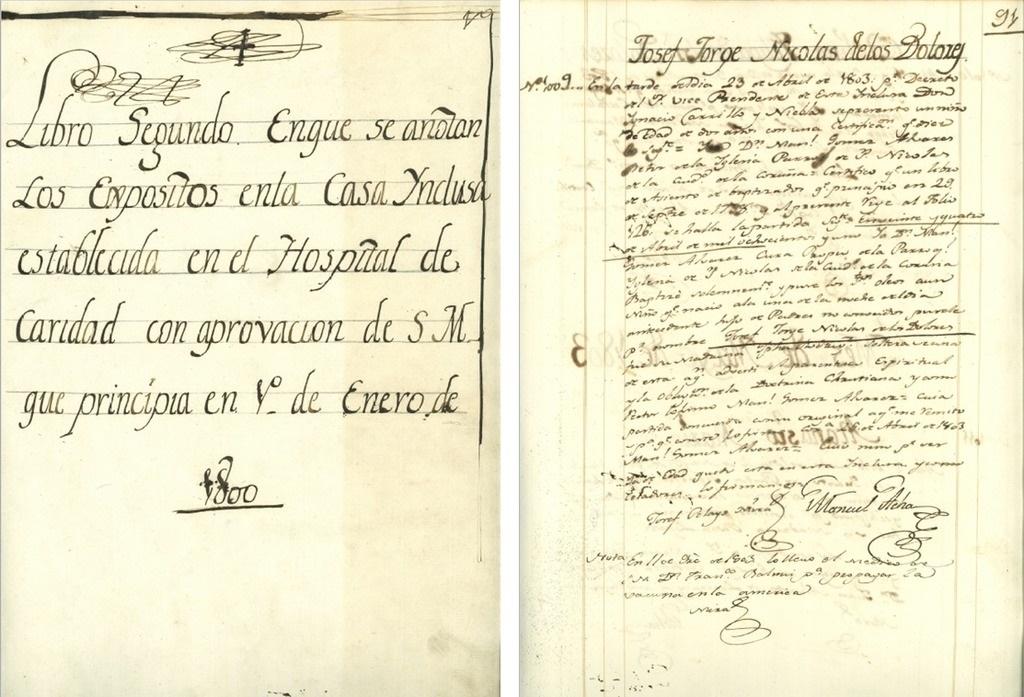 Libro Segundo. Enque se anotan
Los Expositos enla Casa Ynclusa
establecida en el Hospital de
Caridad con aprovacion de S M.
que principia en 1º de Enero de
1800
91
Josef Jorge Nicolas delos Dolores
Nº 1009 En la tarde del dia 23 de Abril de 1803: pr Decreto
del Sr. Vice Presidente de Esta Inclusa Don
Ignacio Carrillo y Niebla se presento un niño
de Edad de dos años con una Certificn. q. dice
lo sigte = Yo Dn. Manl. Gomez Alvarez
Retor de la Iglesia Parroql. de S. Nicolas
de la Ciud. de la Coruña: Certifico q. un libro
de Asiento de bautizados q. principio en 29
de Sepbre de 1793 y al presente Rige al folio
126 se halla la partida sigte En veinte y quatro
de Abril de mil ochocientos y uno Yo Dn. Manl.
Gomez Alvarez Cura Propio de la Parroql.
Iglesia de S. Nicolas de la Ciud. de la Coruña
Baptizé solemnemte. y puse los Stos. oleos a un
Niño q. nacio a la una de la noche del dia
antecedente hijo de Padres no conocidos pusele
pr. nombre Josef Jorge Nicolas de los Dolores
fue su Madrina soltera vecina
de esta q. adverti el parentesco Espiritual
y la Obligon. de la Doctrina Christiana y como
Retor lo firmo Manl. Gomez Alvarez = Cuia
partida concuerda con su original a q. me remito
y pa. q. conste lo firmo Coruña de Abril de 1803
Manl. Gomez Alvarez = Cuio niño pr. ser
de Edad queda esta en esta Inclusa, y como
lo firmamos
Josef Pelayo Neira Manuel Acha
Nota En 11 de Dre. de 1803 lo llevo el Medico de
S.M. Dn. Franco. Balmis pa. propagar la
vacuna en la america
Neira